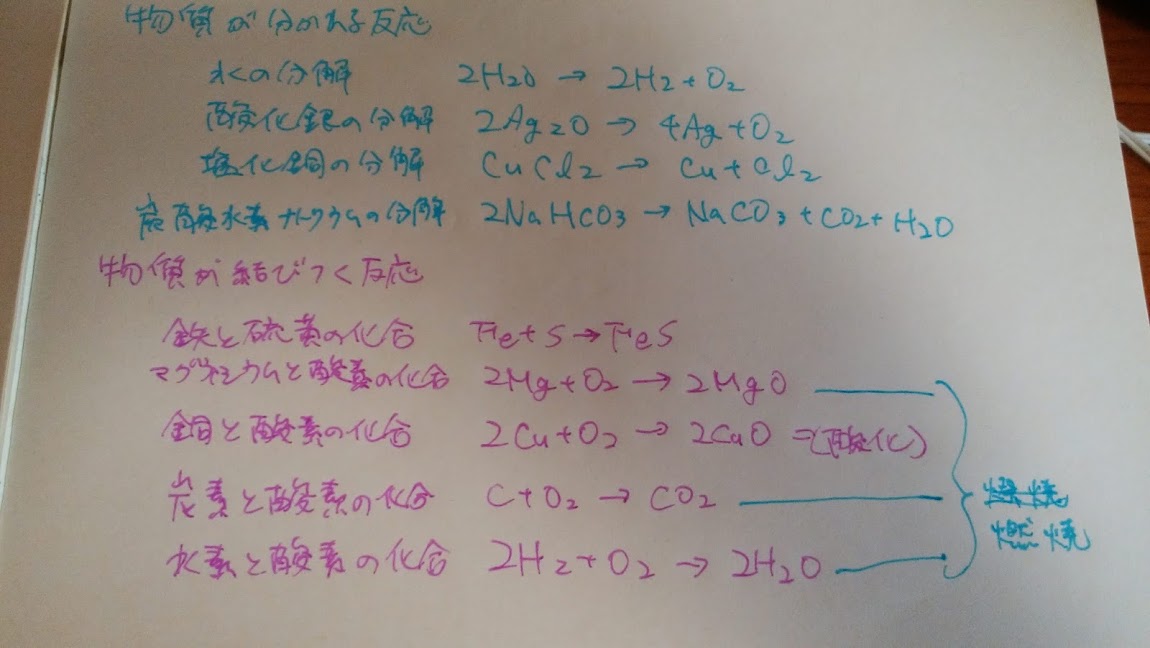 物質が分かれる反応
水の分解 2H2O → 2H2 + O2
酸化銀の分解 2Ag2O → 4Ag + O2
塩化銅の分解 CuCl2 → Cu + Cl2
炭酸水素ナトリウムの分解 2NaHCO3 → NaCO3 + CO2 + H2O
物質が結びつく反応
鉄と硫黄の化合 Fe + S → FeS
マグネシウムと酸素の化合 2Mg + O2 → 2MgO
銅と酸素の化合 2Cu + O2 → 2CuO =(酸化)
炭素と酸素の化合 C + O2 → CO2
燃焼
水素と酸素の化合 2H2 + O2 → 2H2O